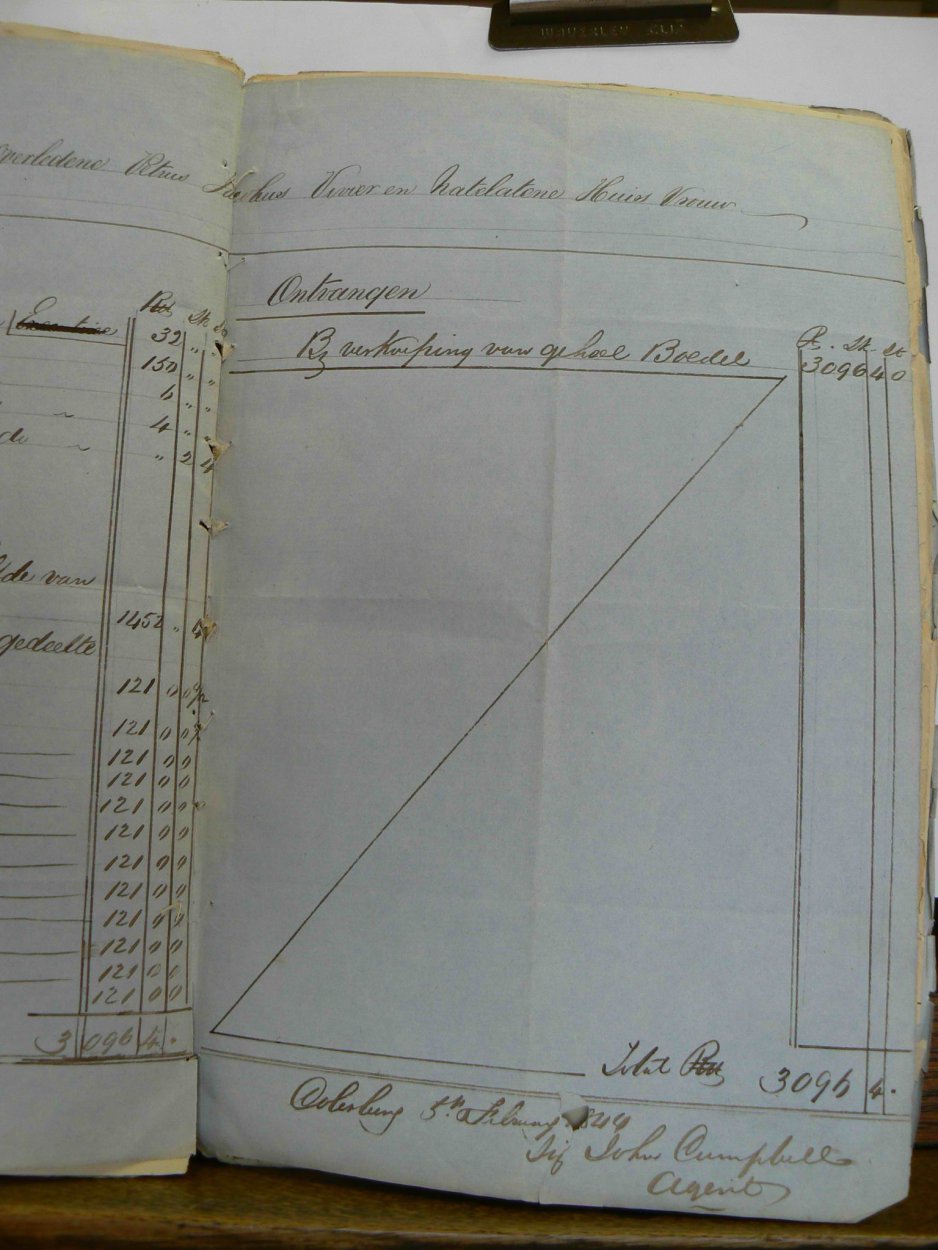 WAVERLEY CLIP
overledene Petrus Jacobus Vivier en Natelatene Huis Vrouw
Rds Sk St
32 " "
150 " "
6 " "
4 " "
do " 2 4
de van
1452 "
gedeelte
121 0 0
121 0 0
121 0 0
121 0 0
121 0 0
121 0 0
121 0 0
121 0 0
121 0 0
121 0 0
121 0 0
121 0 0
3096 4 .
Ontvangen
R. Sk St
By verkoping van geheel Boedel 3096 4 0
Total Rds 3096 4 .
Colesberg 5th February 1844
Sig John Campbell
Agent